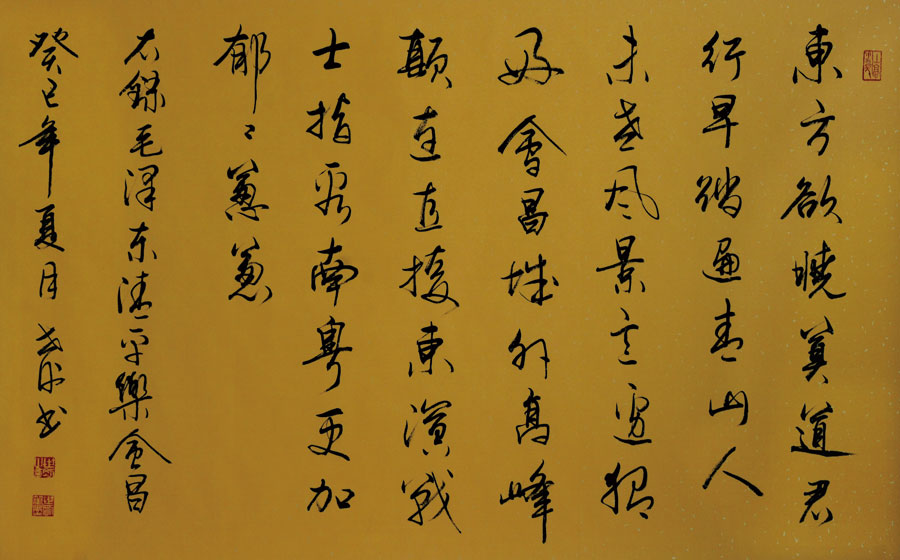 東方欲曉莫道君
行早踏遍青山人
未老风景這邊猶
好會昌城外高峰
顛連直接東溟戰
士指看南粵更加
郁々蔥蔥
右錄毛澤东清平樂會昌
癸巳年夏月书